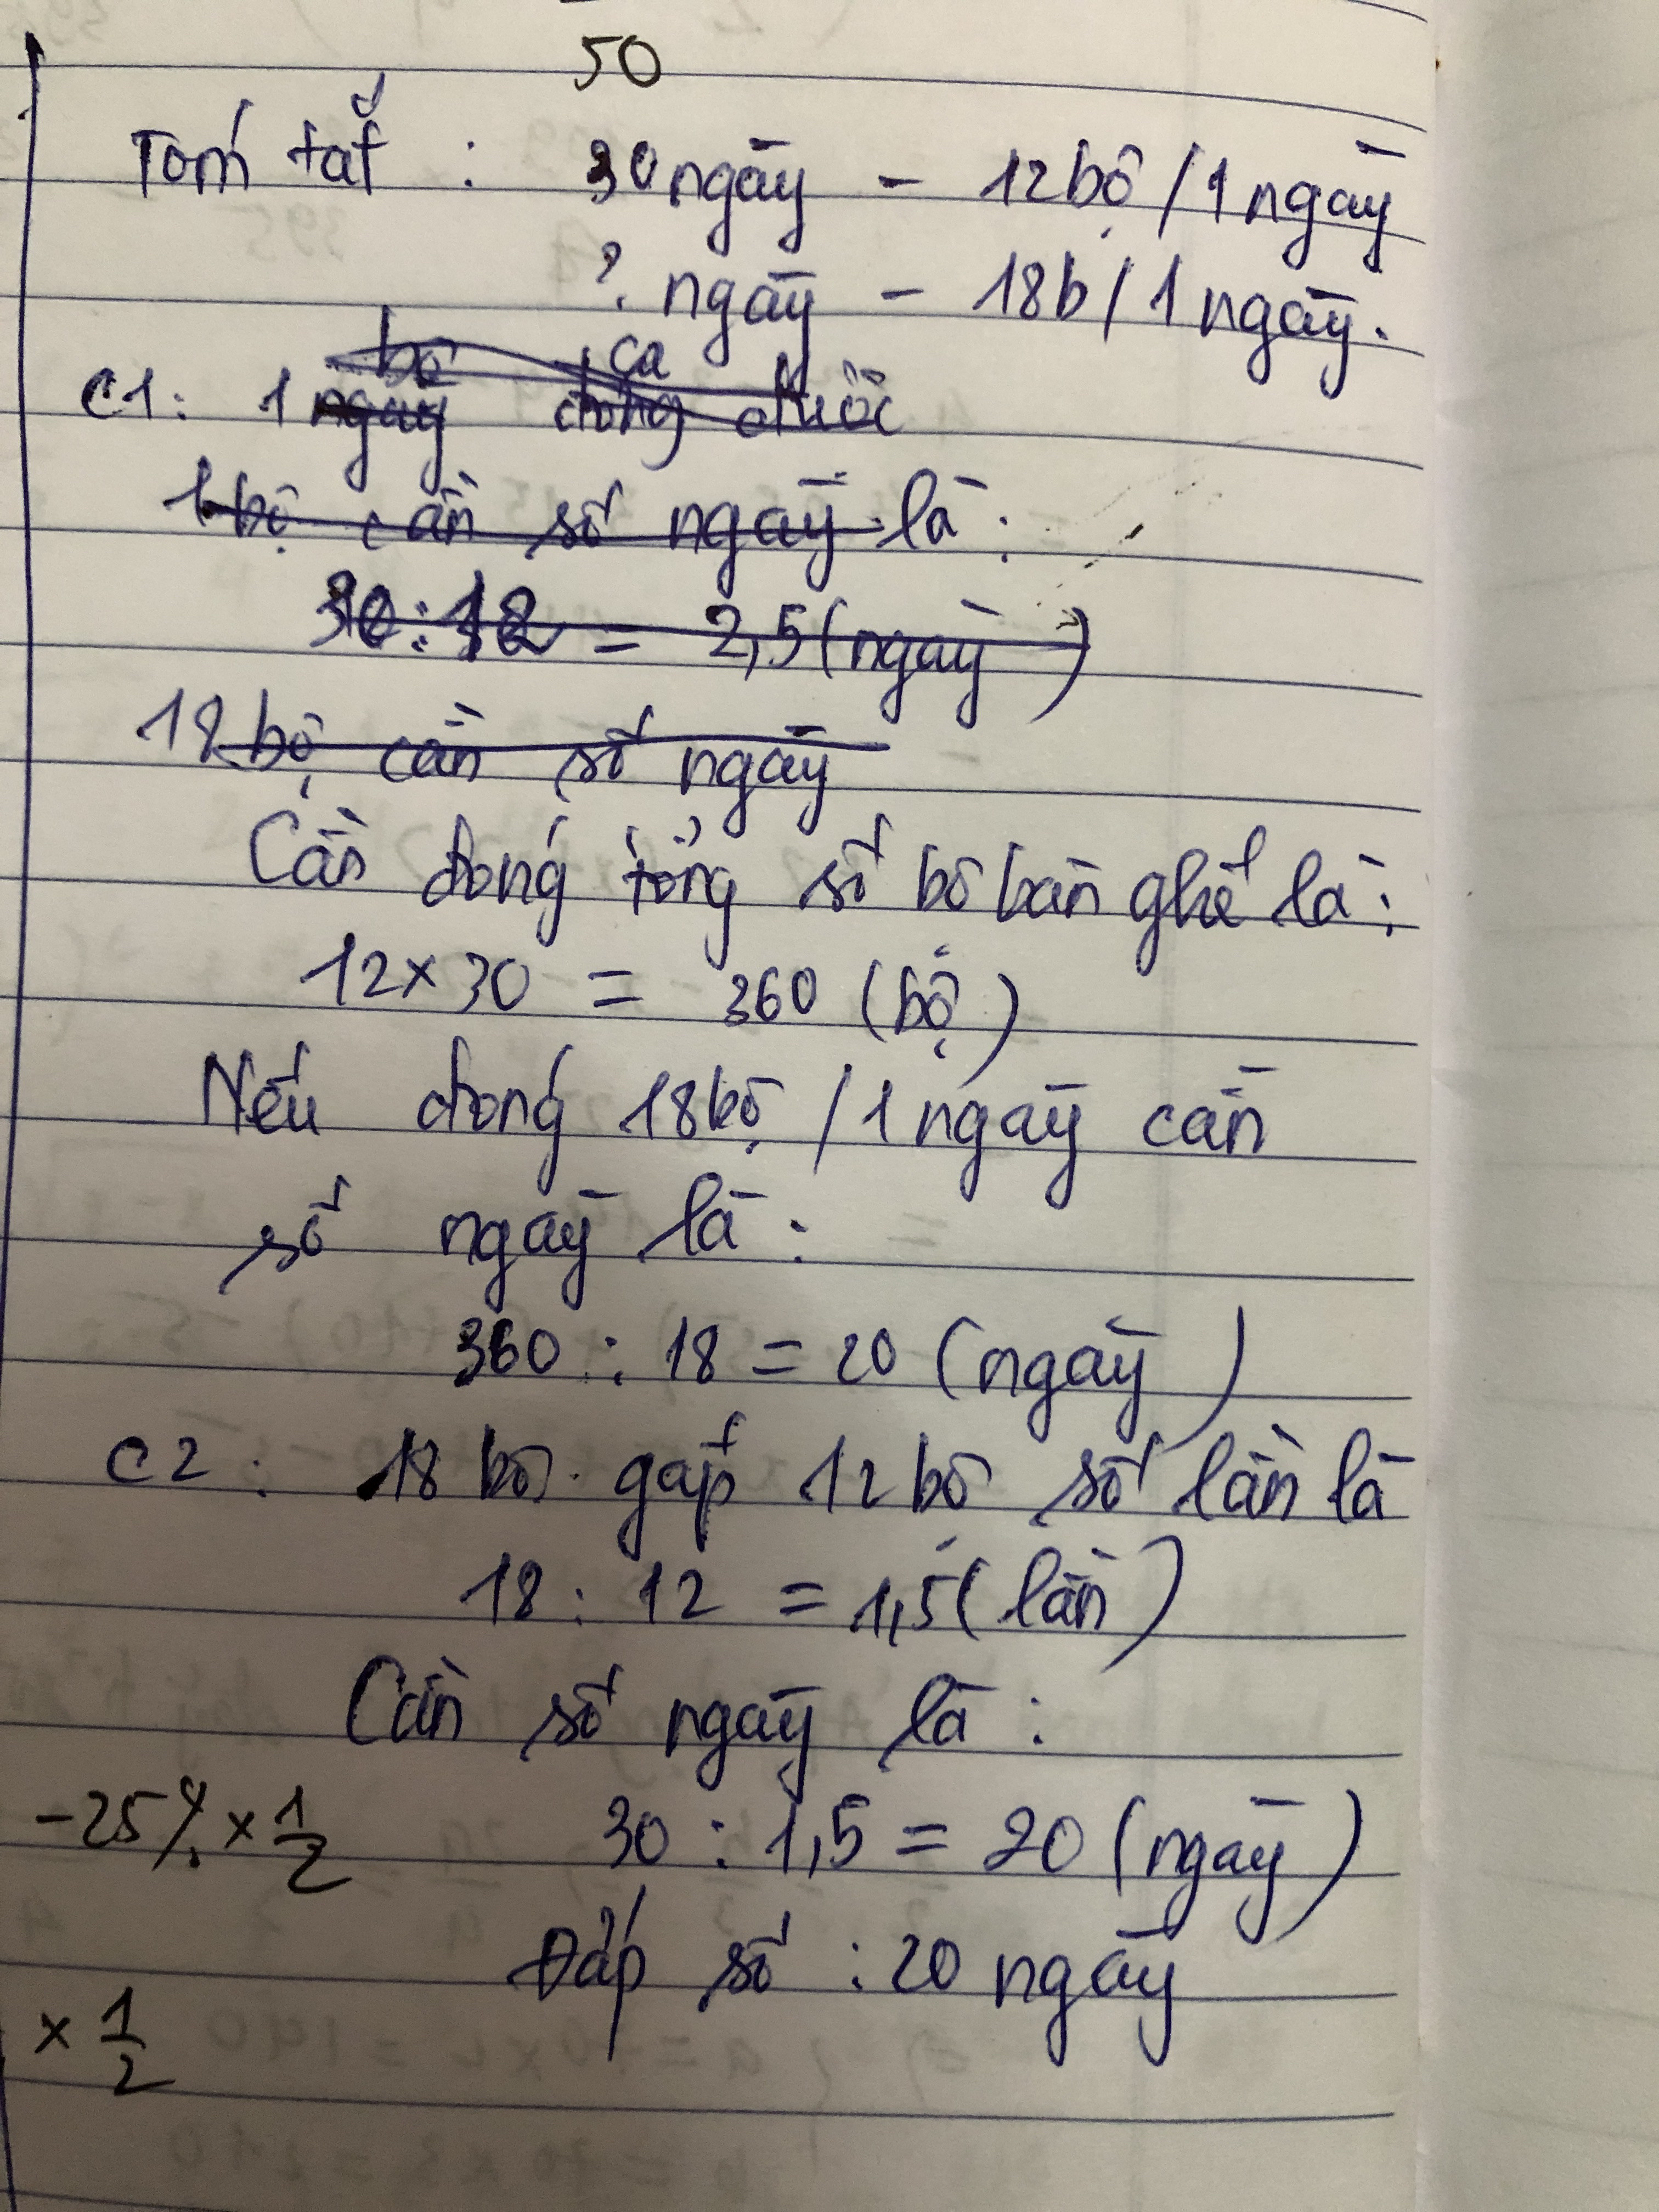 50
Tóm tắt : 30 ngày - 12 bộ / 1 ngày
? ngày - 18b / 1 ngày.
bộ ca
C1 : 1 ngày đóng được
1 bộ cần số ngày là :
30 : 12 = 2,5 (ngày)
18 bộ cần số ngày
Cần đóng tổng số bộ bàn ghế là :
12 x 30 = 360 (bộ)
Nếu đóng 18 bộ / 1 ngày cần
số ngày là :
360 : 18 = 20 (ngày)
C2 : 18 bộ gấp 12 bộ số lần là
18 : 12 = 1,5 (lần)
Cần số ngày là :
-25% x 1/2 30 : 1,5 = 20 (ngày)
Đáp số : 20 ngày
x 1/2